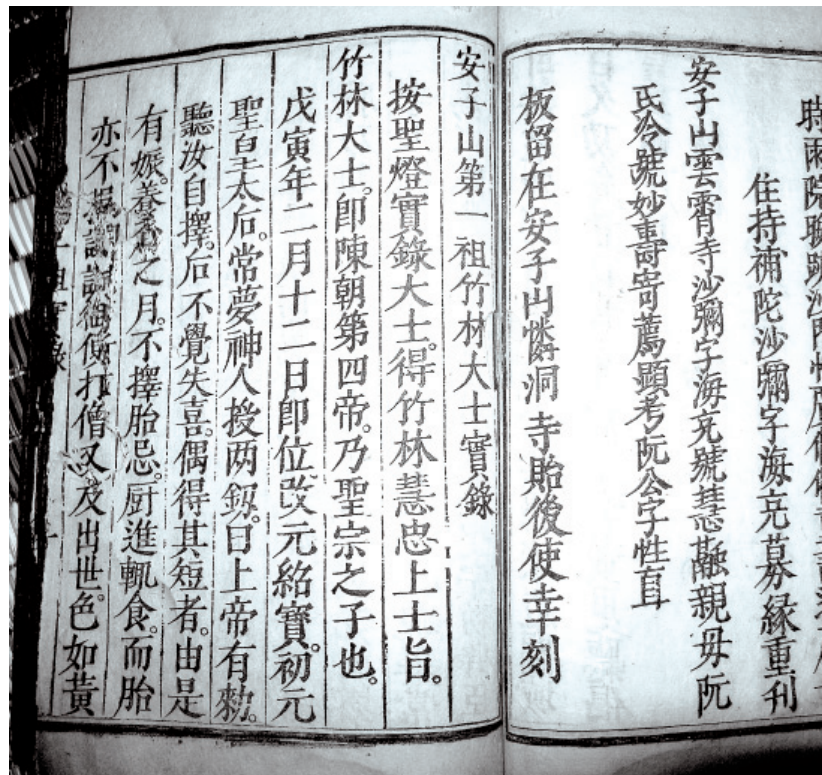 時雨院
住持補陀沙彌字海亮募緣重刊
安子山雲霄寺沙彌字海亮號慧融親母阮
氏令號妙壽寄薦顯考阮公字性直
板留在安子山憐洞寺貽後使幸刻
安子山第一祖竹材大士實錄
按聖燈實錄大士。得竹林慧忠上士旨。
竹林大士。即陳朝第四帝。乃聖宗之子也。
戊寅年二月十二日即位改元紹寶。初元
聖皇太后。常夢神人授两釼。曰上帝有勑。
聽汝自擇。后不覺失喜。偶得其短者。由是
有娠。養之月。不擇胎忌。厨進輒食。而胎
亦不便打僧又。及出世。色如黃
一祖實錄